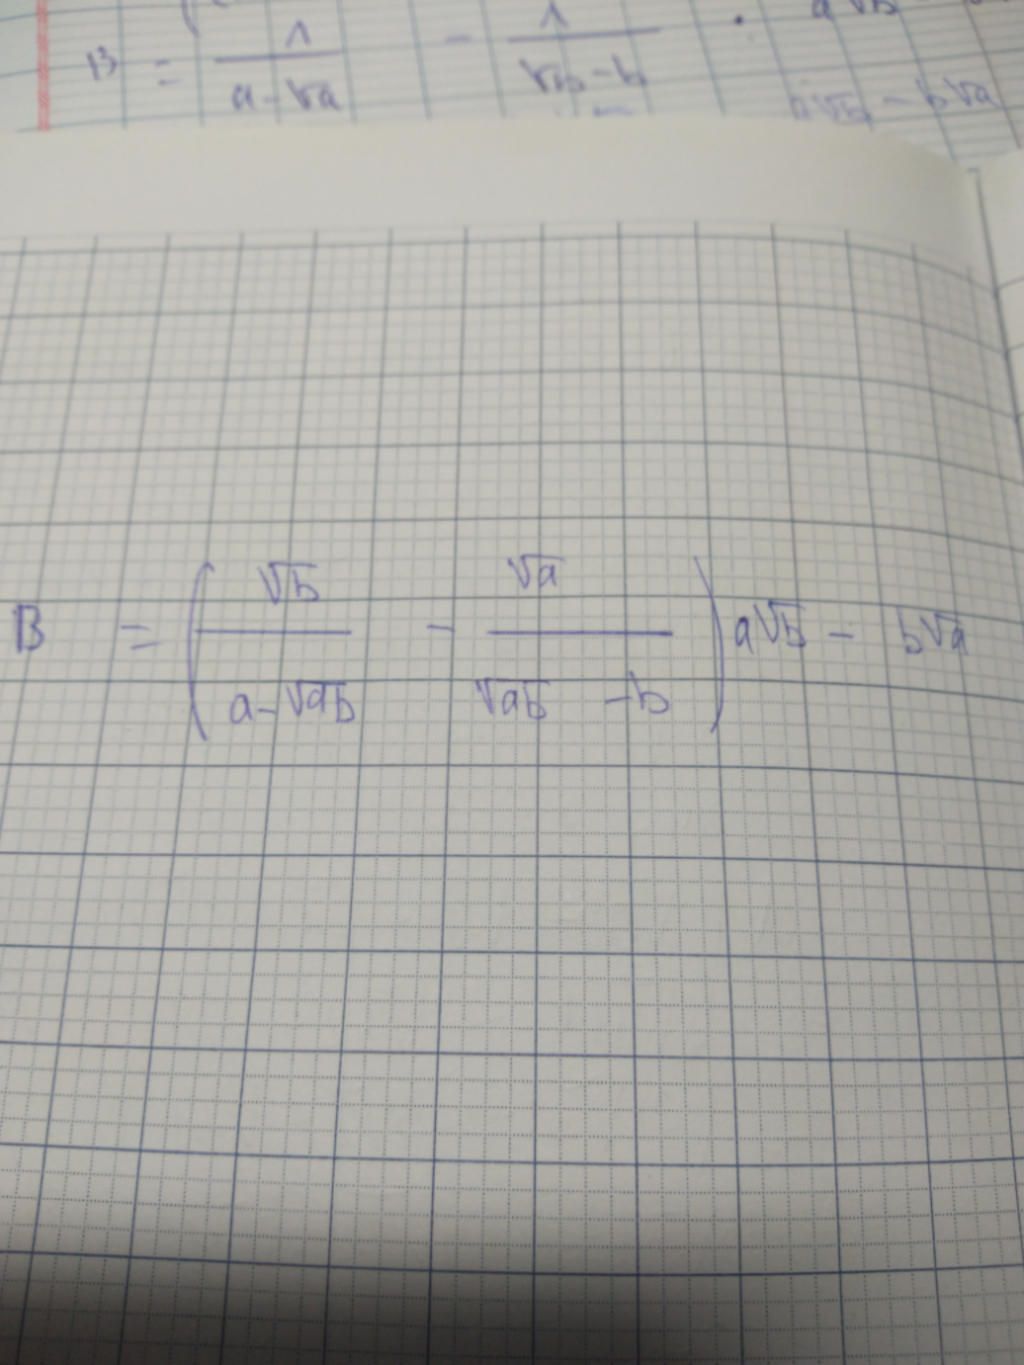 B = 1/(a-√a) - 1/(√ab - b) · a√b
a√b - b√a
B = (√b/(a-√ab) - √a/(√ab - b)) a√b - b√a